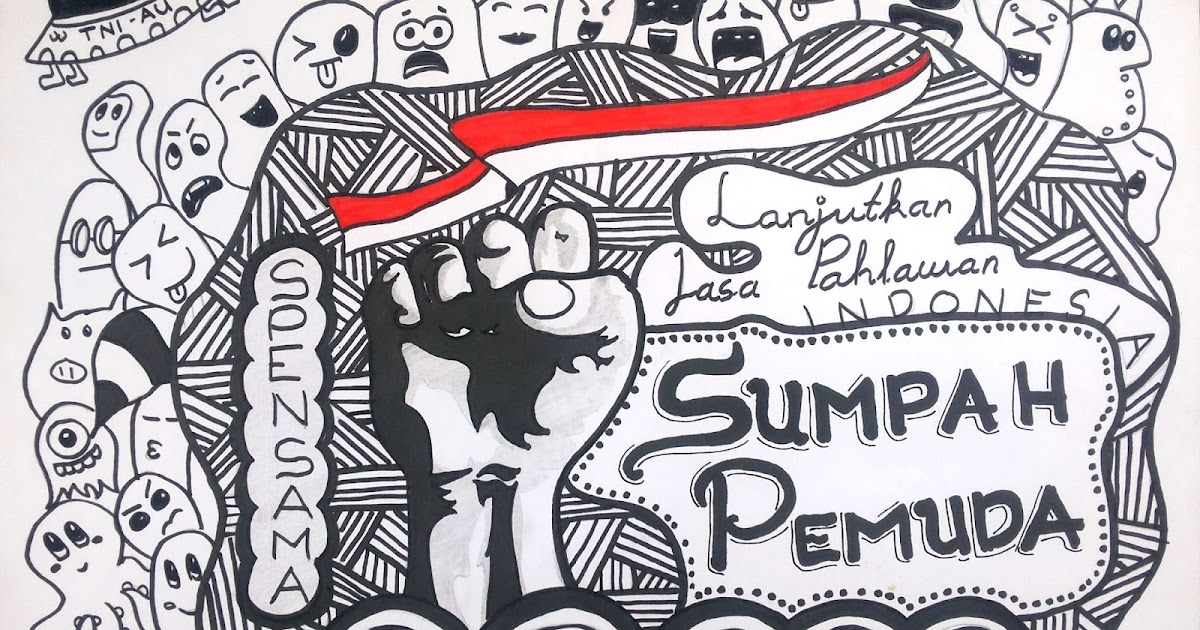 TNI-AU
Lanjutkan
Jasa Pahlawan
INDONESIA
SPENSAMA
SUMPAH
PEMUDA